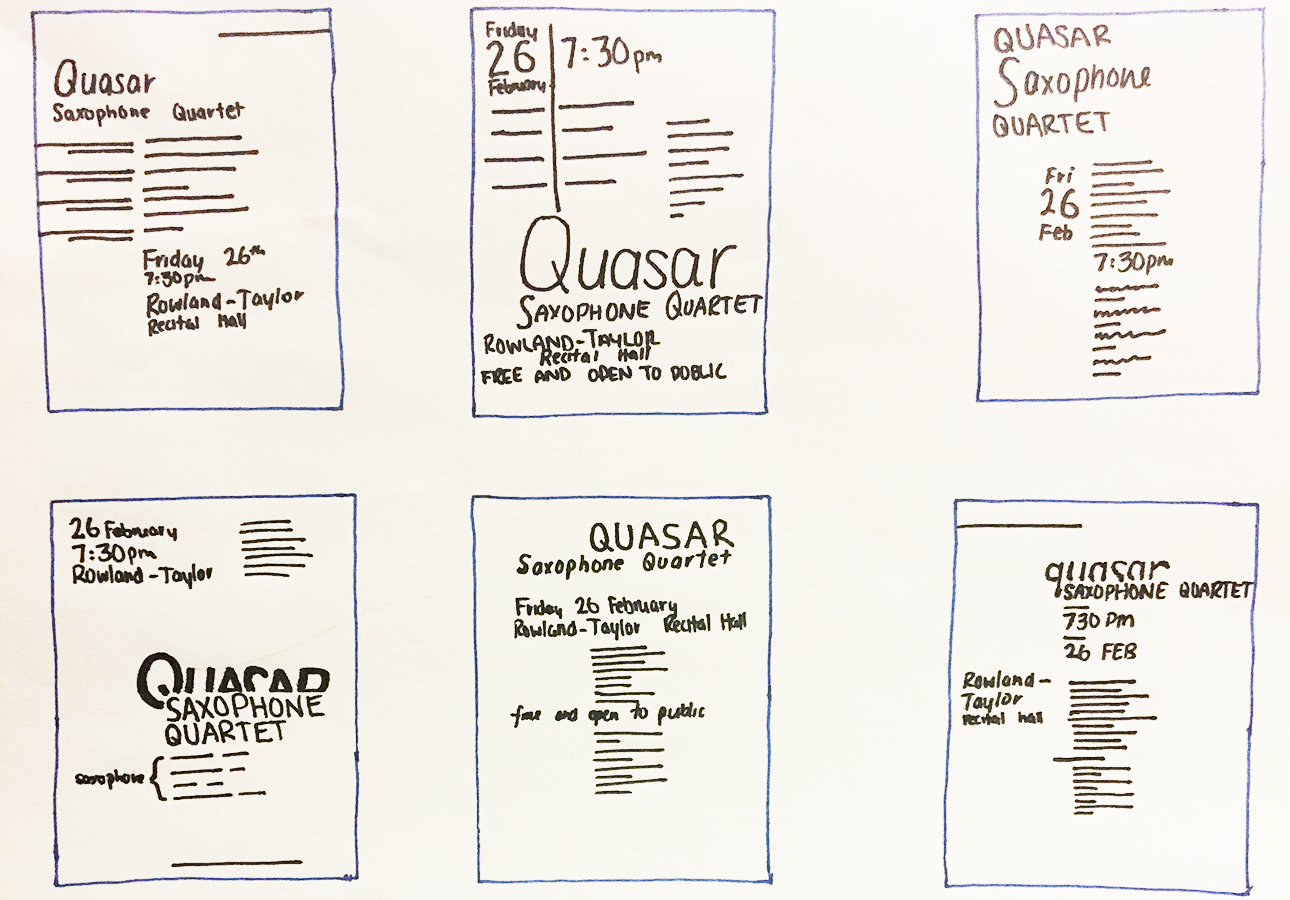 Quasar
Saxophone Quartet
Friday 26th
7:30pm
Rowland-Taylor
Recital Hall
Friday
26
February
7:30pm
Quasar
SAXOPHONE QUARTET
ROWLAND-TAYLOR
Recital Hall
FREE AND OPEN TO PUBLIC
QUASAR
Saxophone
QUARTET
Fri
26
Feb
7:30pm
26 February
7:30pm
Rowland-Taylor
QUASAR
SAXOPHONE
QUARTET
saxophone {
QUASAR
Saxophone Quartet
Friday 26 February
Rowland-Taylor Recital Hall
free and open to public
quasar
SAXOPHONE QUARTET
730 Pm
26 FEB
Rowland-
Taylor
recital hall